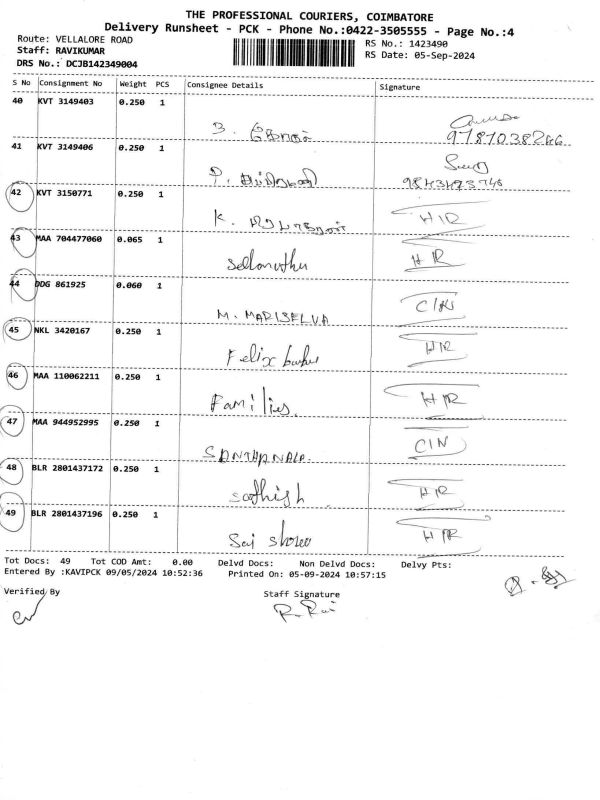 THE PROFESSIONAL COURIERS, COIMBATORE
Delivery Runsheet - PCK - Phone No.:0422-3505555 - Page No.:4
Route: VELLALORE ROAD
RS No.: 1423490
Staff: RAVIKUMAR
RS Date: 05-Sep-2024
DRS No.: DCJB142349004
S No Consignment No Weight PCS Consignee Details Signature
40 KVT 3149403 0.250 1
41 KVT 3149406 0.250 1
42 KVT 3150771 0.250 1
K. H/R
43 MAA 704477060 0.065 1
H/R
44 DDG 861925 0.060 1
M. MARISELVA C/N
45 NKL 3420167 0.250 1
Felix H/R
46 MAA 110062211 0.250 1
Families. H/R
47 MAA 944952995 0.250 1
C/N
48 BLR 2801437172 0.250 1
Sathish H/R
49 BLR 2801437196 0.250 1
Sai H/R
Tot Docs: 49 Tot COD Amt: 0.00 Delvd Docs: Non Delvd Docs: Delvy Pts:
Entered By :KAVIPCK 09/05/2024 10:52:36 Printed On: 05-09-2024 10:57:15
Verified By Staff Signature